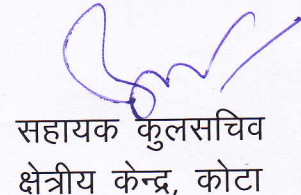 सहायक कुलसचिव
क्षेत्रीय केन्द्र, कोटा